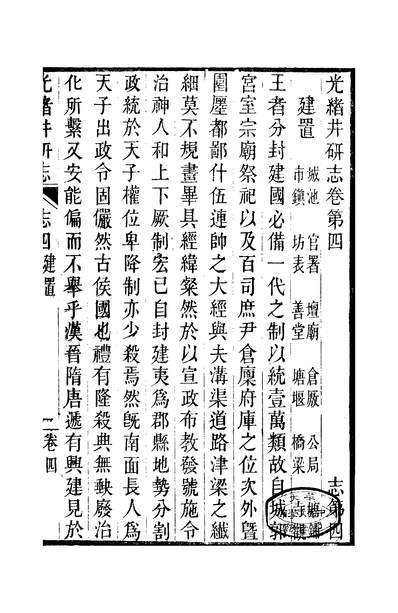 光緒井研志卷第四 志第四
建置 城池 官署 壇廟 倉厫 公局 塘鋪
市鎮 坊表 善堂 塘堰 橋梁 寺觀
王者分封建國必備一代之制以統壹萬類故自城郭
宮室宗廟祭祀以及百司庶尹倉廩府庫之位次外曁
園廛都鄙什伍連帥之大經與夫溝渠道路津梁之纖
細莫不規畫畢具經緯粲然於以宣政布教發號施令
治神人和上下厥制宏已自封建夷爲郡縣地勢分割
政統於天子權位卑降制亦少殺焉然旣南面長人爲
天子出政令固儼然古侯國也禮有隆殺典無軼廢治
化所繫又安能偏而不舉乎漢晉隋唐遞有興建見於
光緒井研志 志四 建置 一 卷四